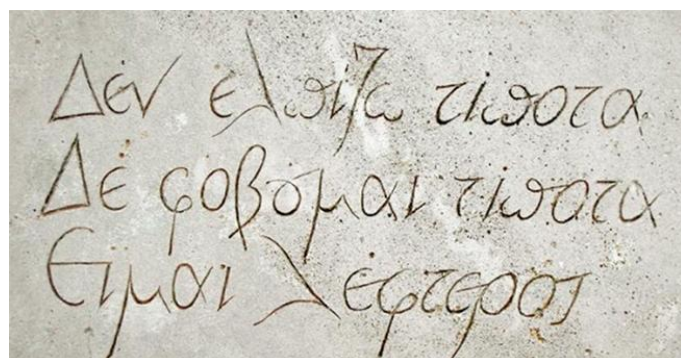 Δέν ελπίζω τίποτα
Δέ φοβουμαι τίποτα
Ειμαι λέφτερος